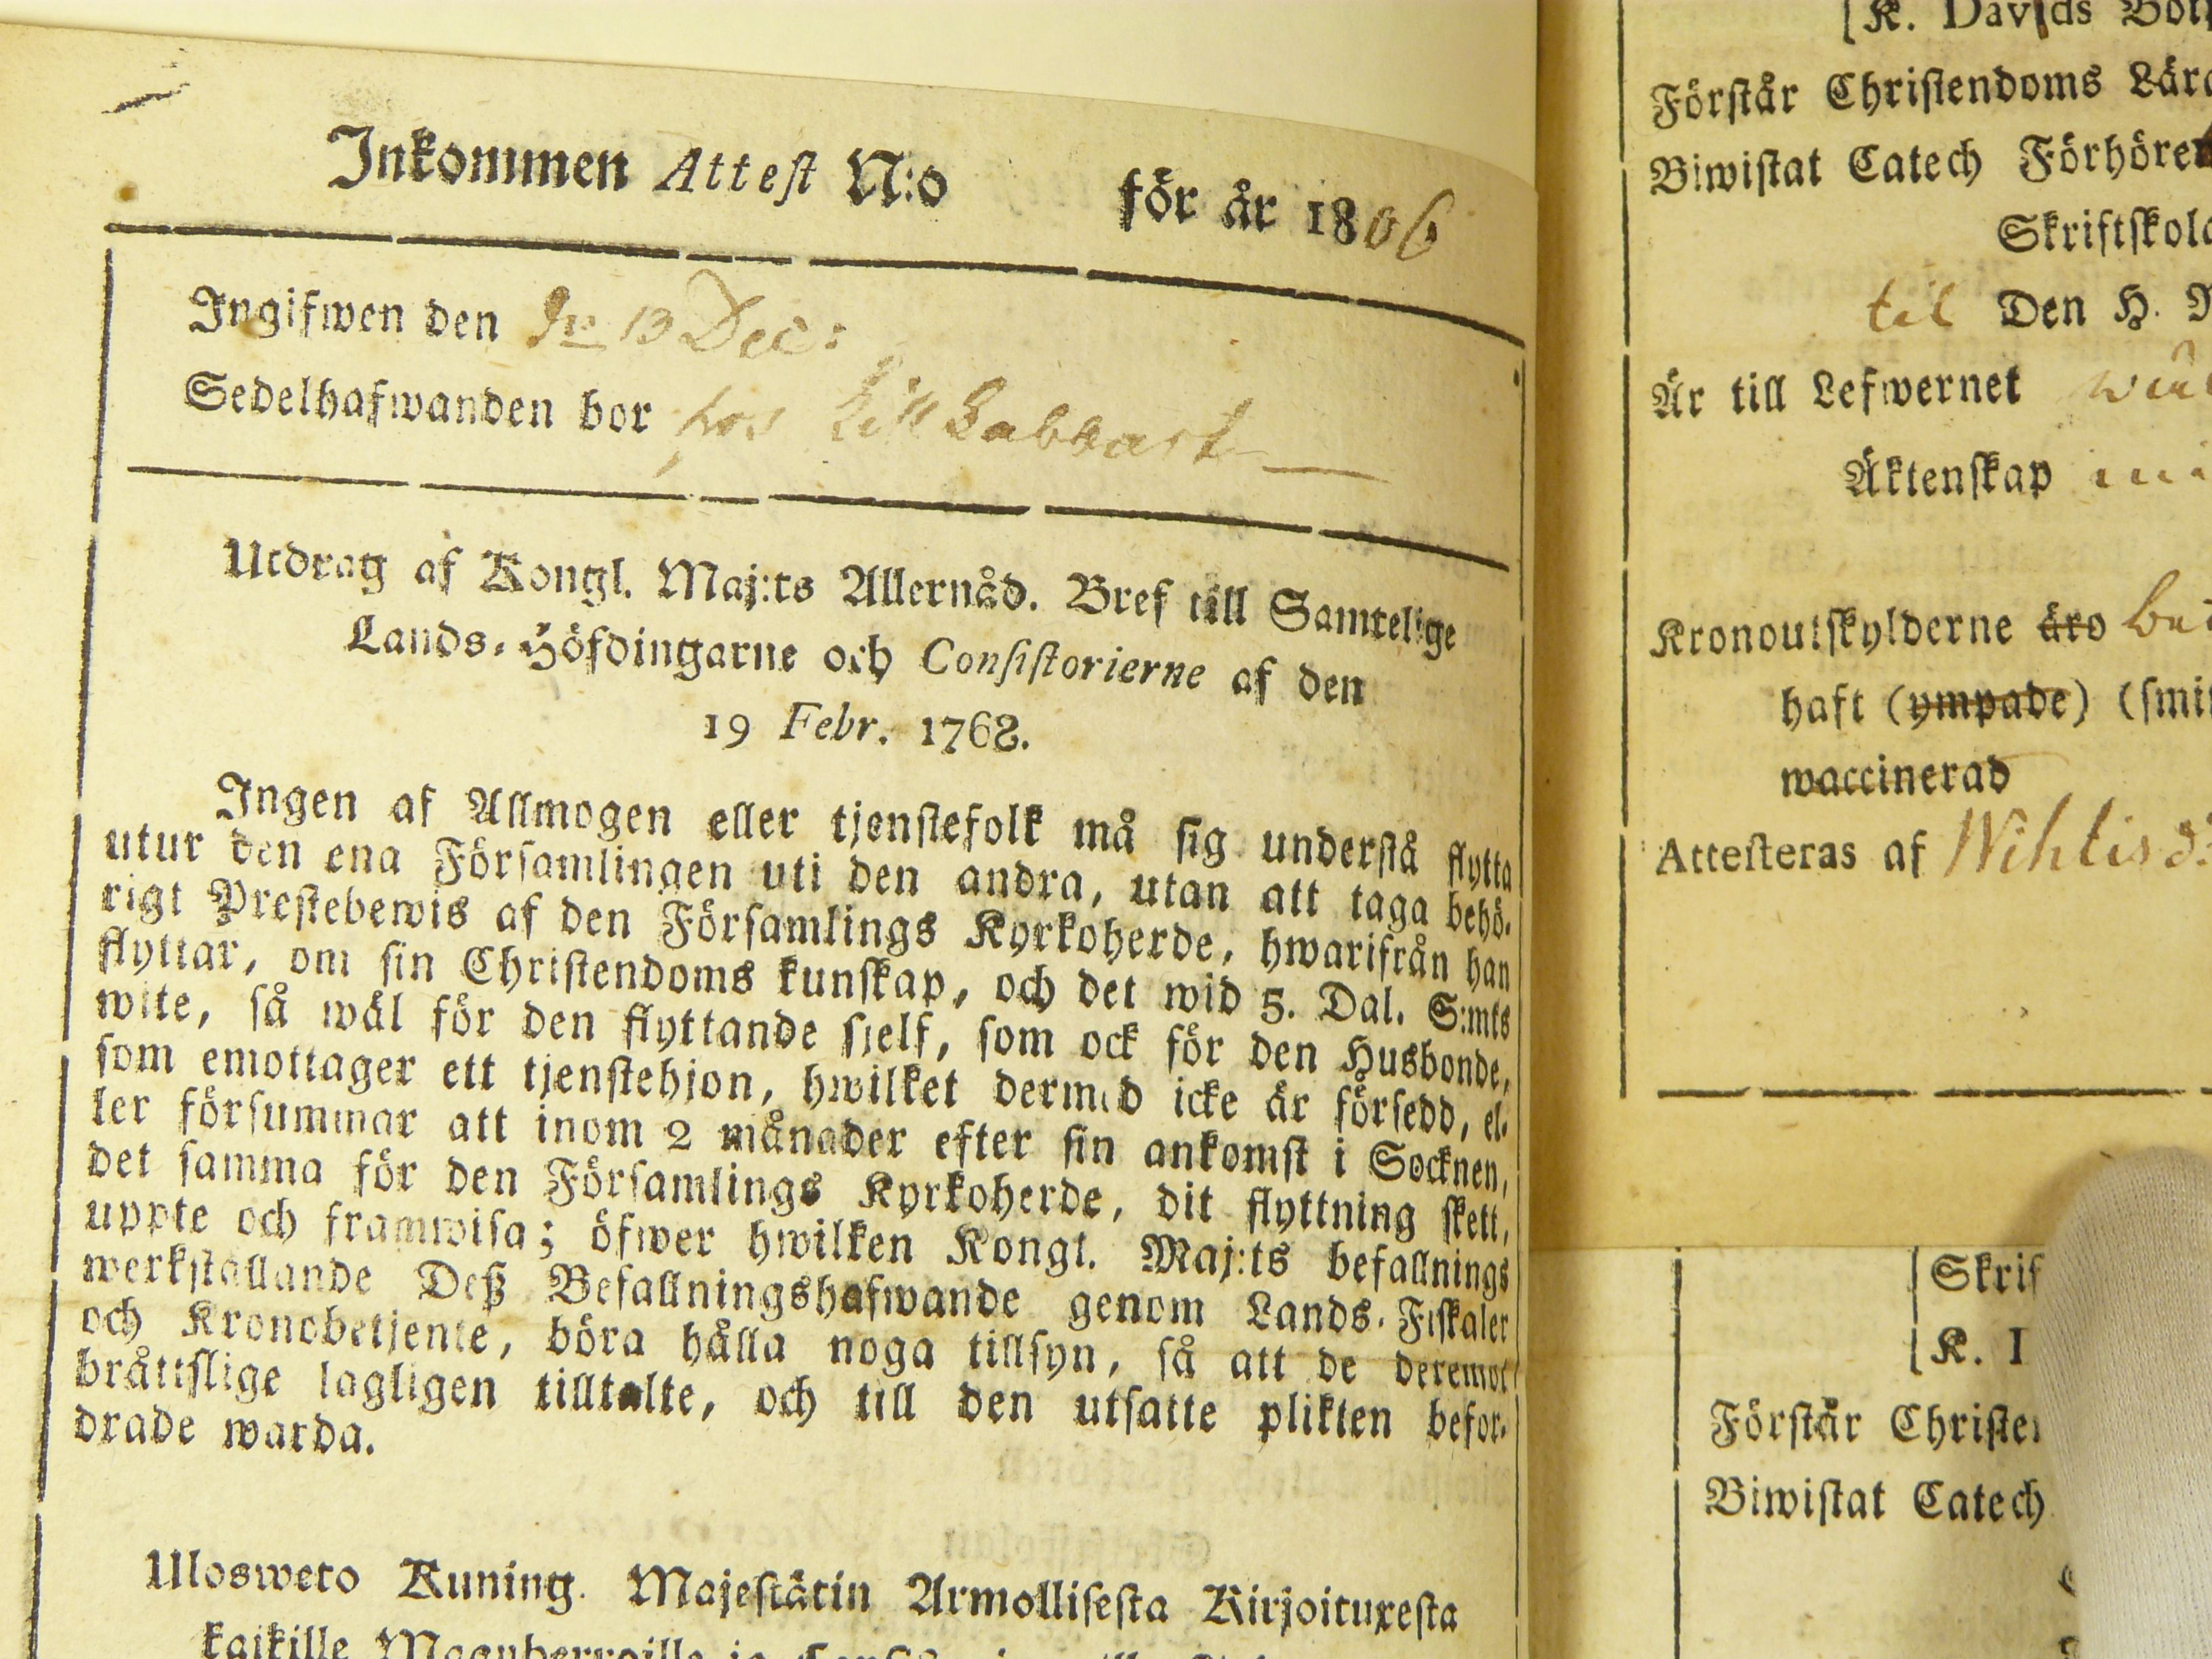 Inkommen Attest N:o för år 1806
Ingifwen den 13 Dec:
Sedelhafwanden bor hos Lill Labbart
Utdrag af Kongl. Maj:ts Allernåd. Bref till Samtelige
Lands-Höfdingarne och Consistorierne af den
19 Febr. 1768.
Ingen af Allmogen eller tjenstefolk må sig understå flytta
utur den ena Församlingen uti den andra, utan att taga behö-
rigt Prestebewis af den Församlings Kyrkoherde, hwarifrån han
flyttar, om sin Christendoms kunskap, och det wid 5. Dal. S:mts
wite, så wäl för den flyttande sjelf, som ock för den Husbonde,
som emottager ett tjenstehjon, hwilket dermed icke är försedd, el-
ler försummar att inom 2 månader efter sin ankomst i Socknen,
det samma för den Församlings Kyrkoherde, dit flyttning skett,
uppte och framwisa; öfwer hwilken Kongl. Maj:ts befallnings
werkställande Deß Befallningshafwande genom Lands-Fiskaler
och Kronobetjente, böra hålla noga tillsyn, så att de deremot
bråttslige lagligen tilltalte, och till den utsatte plikten befor-
drade warda.
Ulosweto Kuning. Majestätin Armollisesta Kirjoituxesta
kaikille
[K. Davids
Förstår Christendoms
Biwistat Catech Förhören
til Den H.
Är till Lefwernet
Äktenskap
Kronoutskylderne äro
haft (ympade)
waccinerad
Attesteras af Wihtis
K.
Förstår
Biwistat Catech